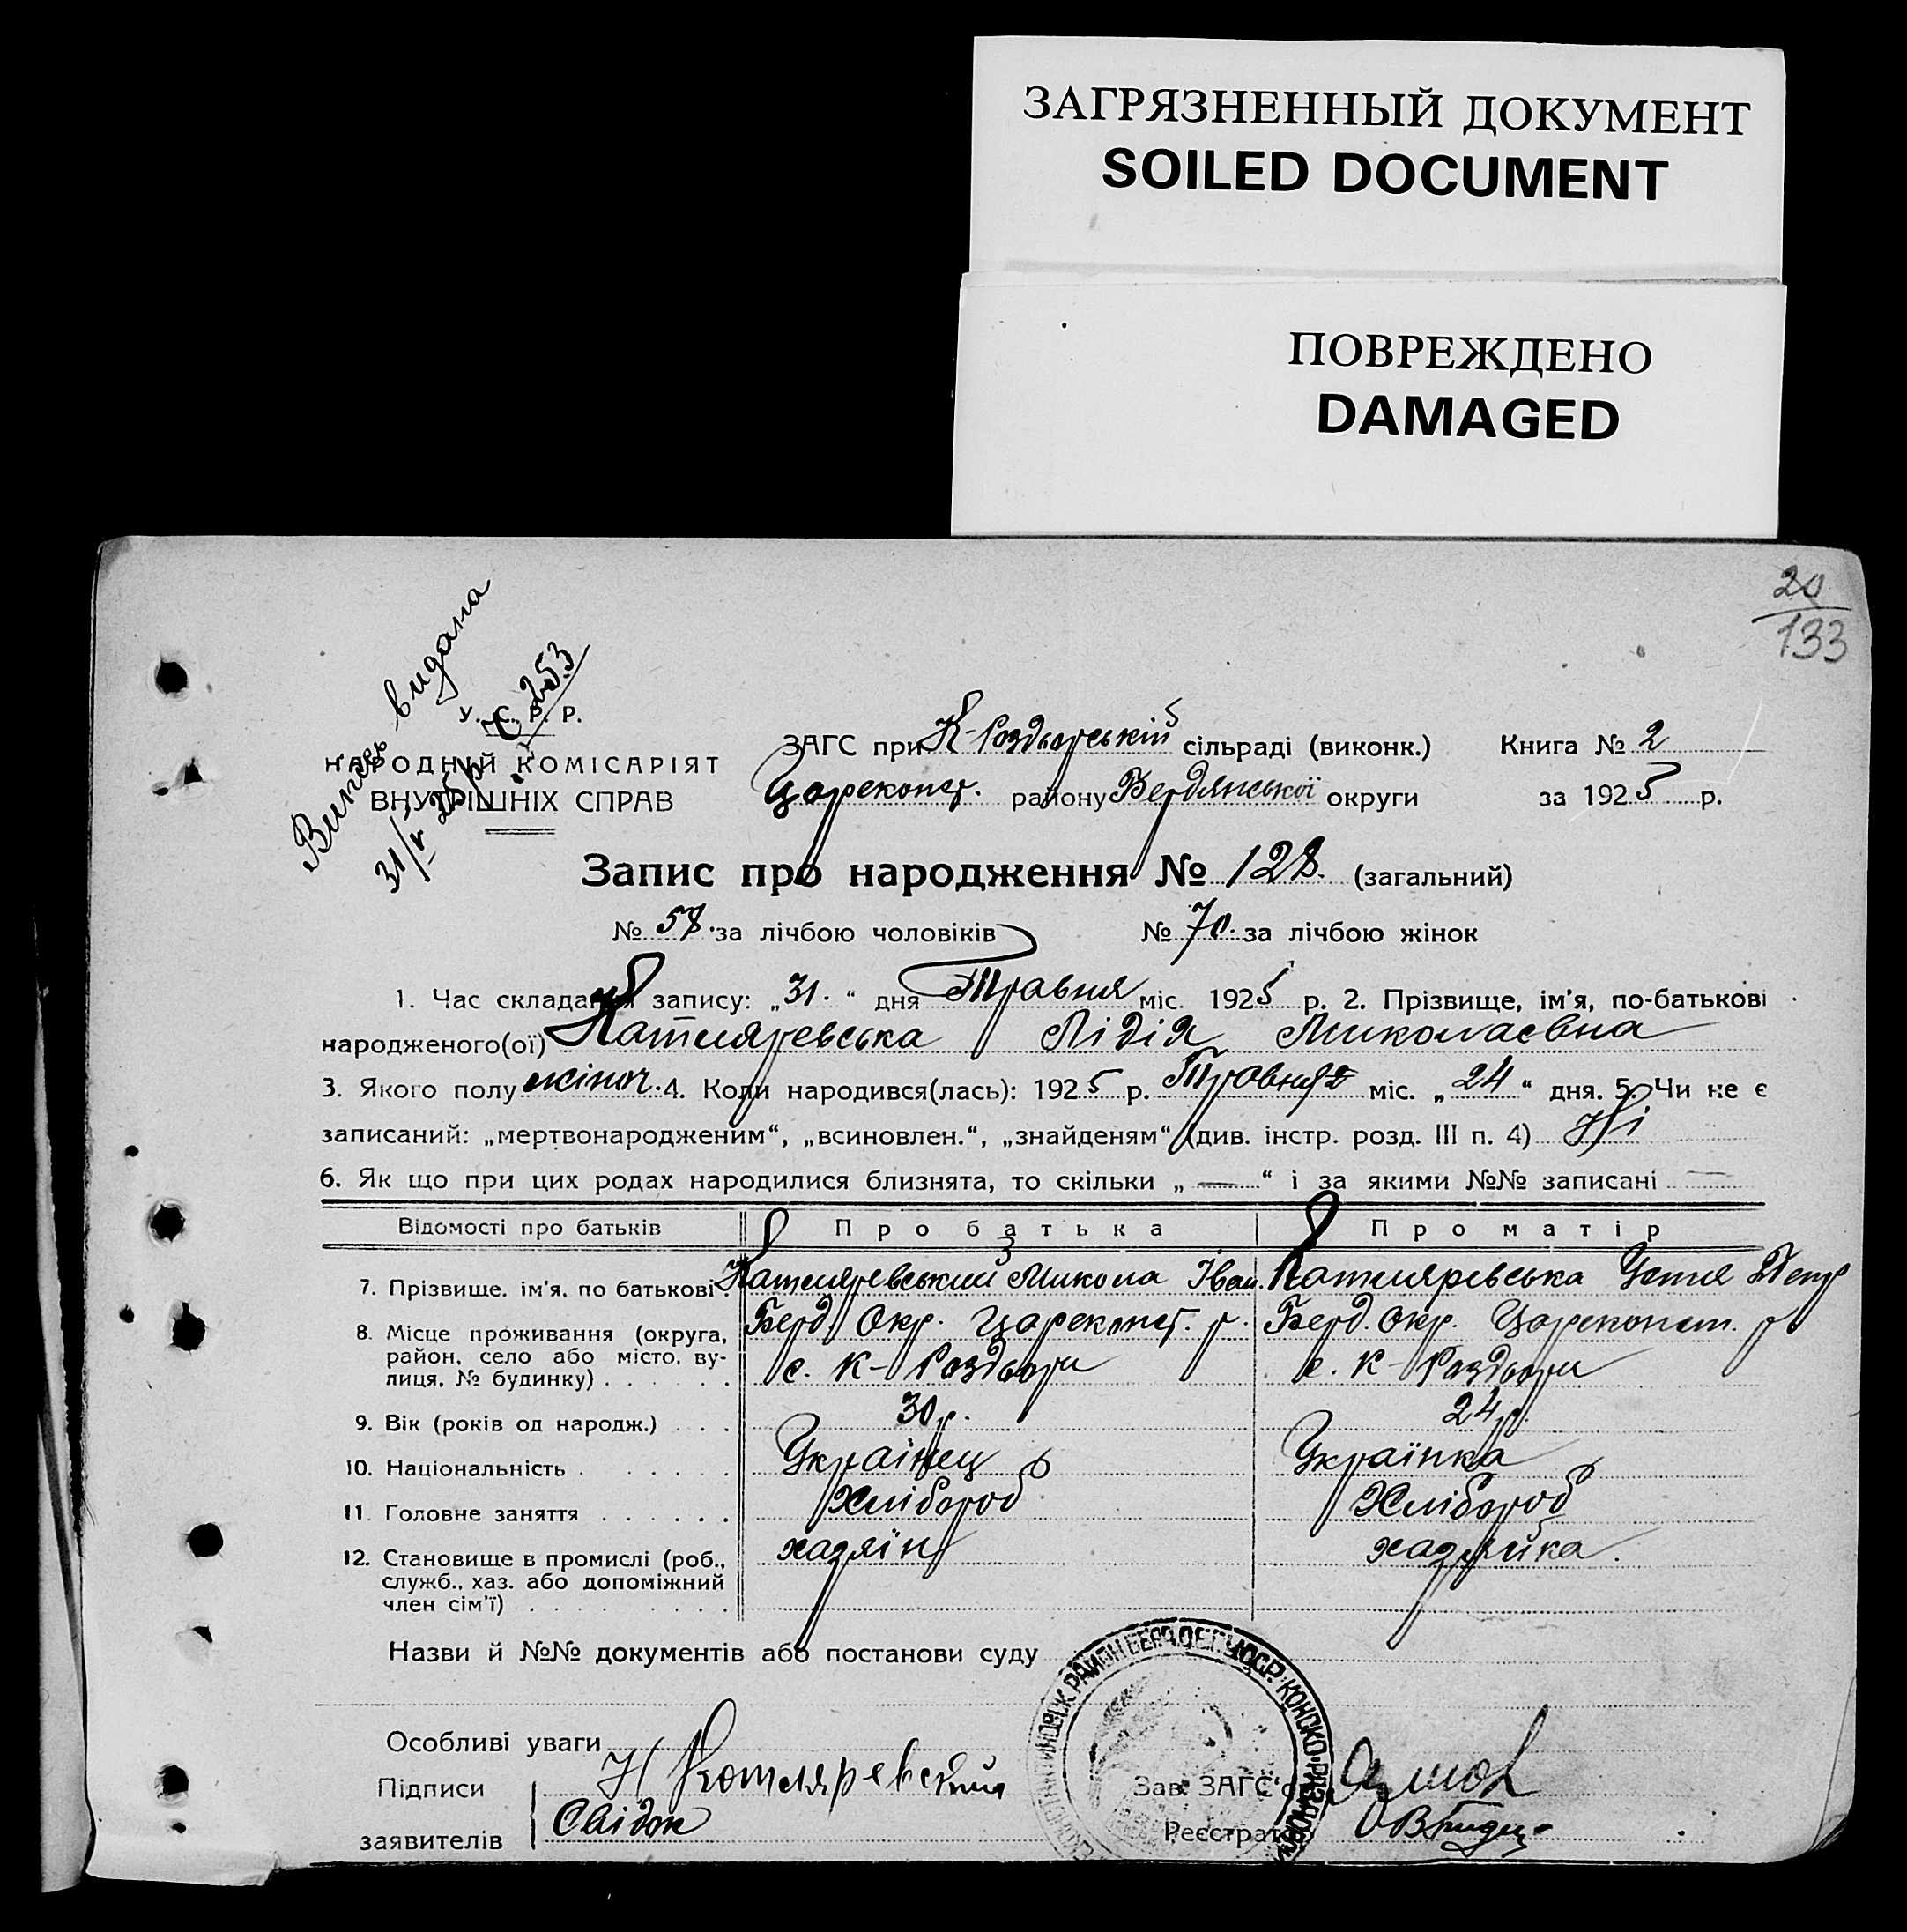 ЗАГРЯЗНЕННЫЙ ДОКУМЕНТ
SOILED DOCUMENT
ПОВРЕЖДЕНО
DAMAGED
20
133
Витяг видана
31/V 25р. № 253
У. С. Р. Р.
НАРОДНІЙ КОМІСАРІЯТ
ВНУТРІШНІХ СПРАВ
ЗАГС при К-Роздорській сільраді (виконк.) Книга № 2
Цареконст. району Бердянської округи за 1925 р.
Запис про народження № 128. (загальний)
№ 58. за лічбою чоловіків № 70. за лічбою жінок
1. Час складання запису: „31.“ дня Травня міс. 1925 р. 2. Прізвище, ім'я, по-батькові
народженого(ої) Катляревська Лідія Миколаевна
3. Якого полу жіноч. 4. Коли народився(лась): 1925 р. Травня міс. „24“ дня. 5. Чи не є
записаний: „мертвонародженим“, „всиновлен.“, „знайденям“ (див. інстр. розд. III п. 4) Ні
6. Як що при цих родах народилися близнята, то скільки „—“ і за якими №№ записані —
Відомості про батьків Про батька Про матір
7. Прізвище, ім'я, по батькові. Катляревський Микола Іван. Катляревська Устия Петр
8. Місце проживання (округа, Берд. Окр. Цареконст. р. Берд. Окр. Цареконст. р
район, село або місто, ву- с. К-Роздори с. К-Роздори
лиця, № будинку)
9. Вік (років од народж.) 30 р. 24 р.
10. Національність Українец Українка
11. Головне заняття Хлібороб Хлібороб
12. Становище в промислі (роб., хазяїн хазяйка.
служб., хаз. або допоміжний
член сім'ї)
Назви й №№ документів або постанови суду
Особливі уваги
Підписи Н Котляревский Зав. ЗАГС'ом
заявителів Свідок Реєстратор